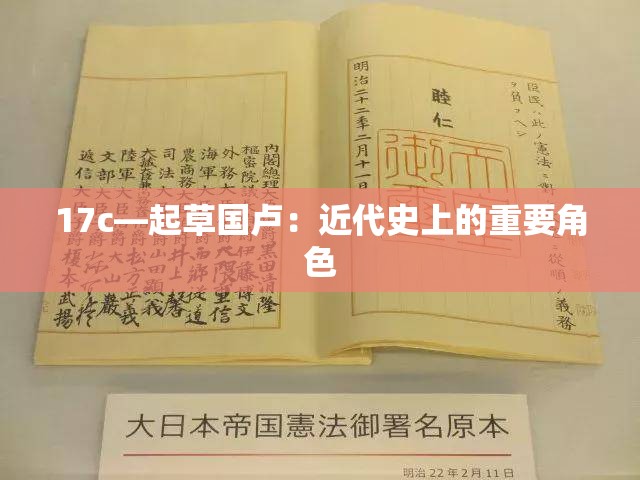 臣民ハ此ノ憲法ニ對シ
從順ノ義務
ヲ負フヘシ
睦仁
明治二十二年二月十一日
内閣總理大臣伯爵黒田清隆
樞密院議長伯爵伊藤博文
外務大臣伯爵大隈重信
海軍大臣伯爵西郷從道
農商務大臣伯爵井上馨
司法大臣伯爵山田顯義
大藏大臣伯爵松方正義
陸軍大臣伯爵大山巖
文部大臣子爵森有禮
遞信大臣子爵榎本武揚
17c—起草国卢：近代史上的重要角
色
大日本帝国憲法御署名原本
明治22年2月11日